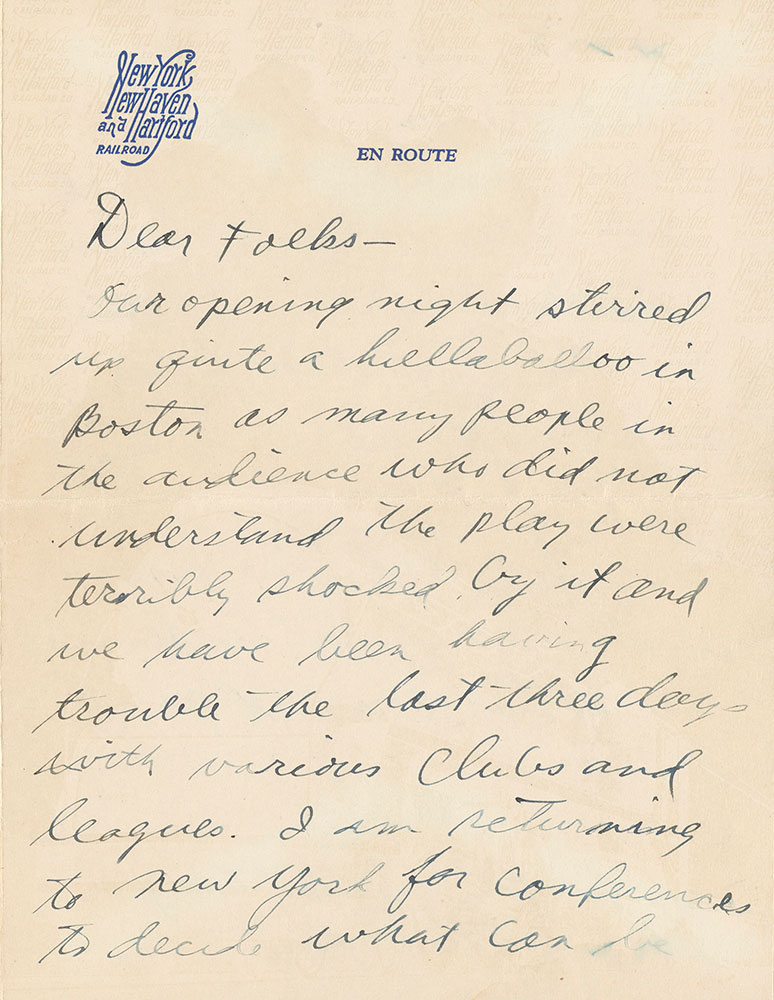 New York,
New Haven
and Hartford
RAILROAD
EN ROUTE
Dear Folks—
Our opening night stirred
up quite a hullabaloo in
Boston as many people in
the audience who did not
understand the play were
terribly shocked by it and
we have been having
trouble the last three days
with various clubs and
leagues. I am returning
to New York for conferences
to decide what can be